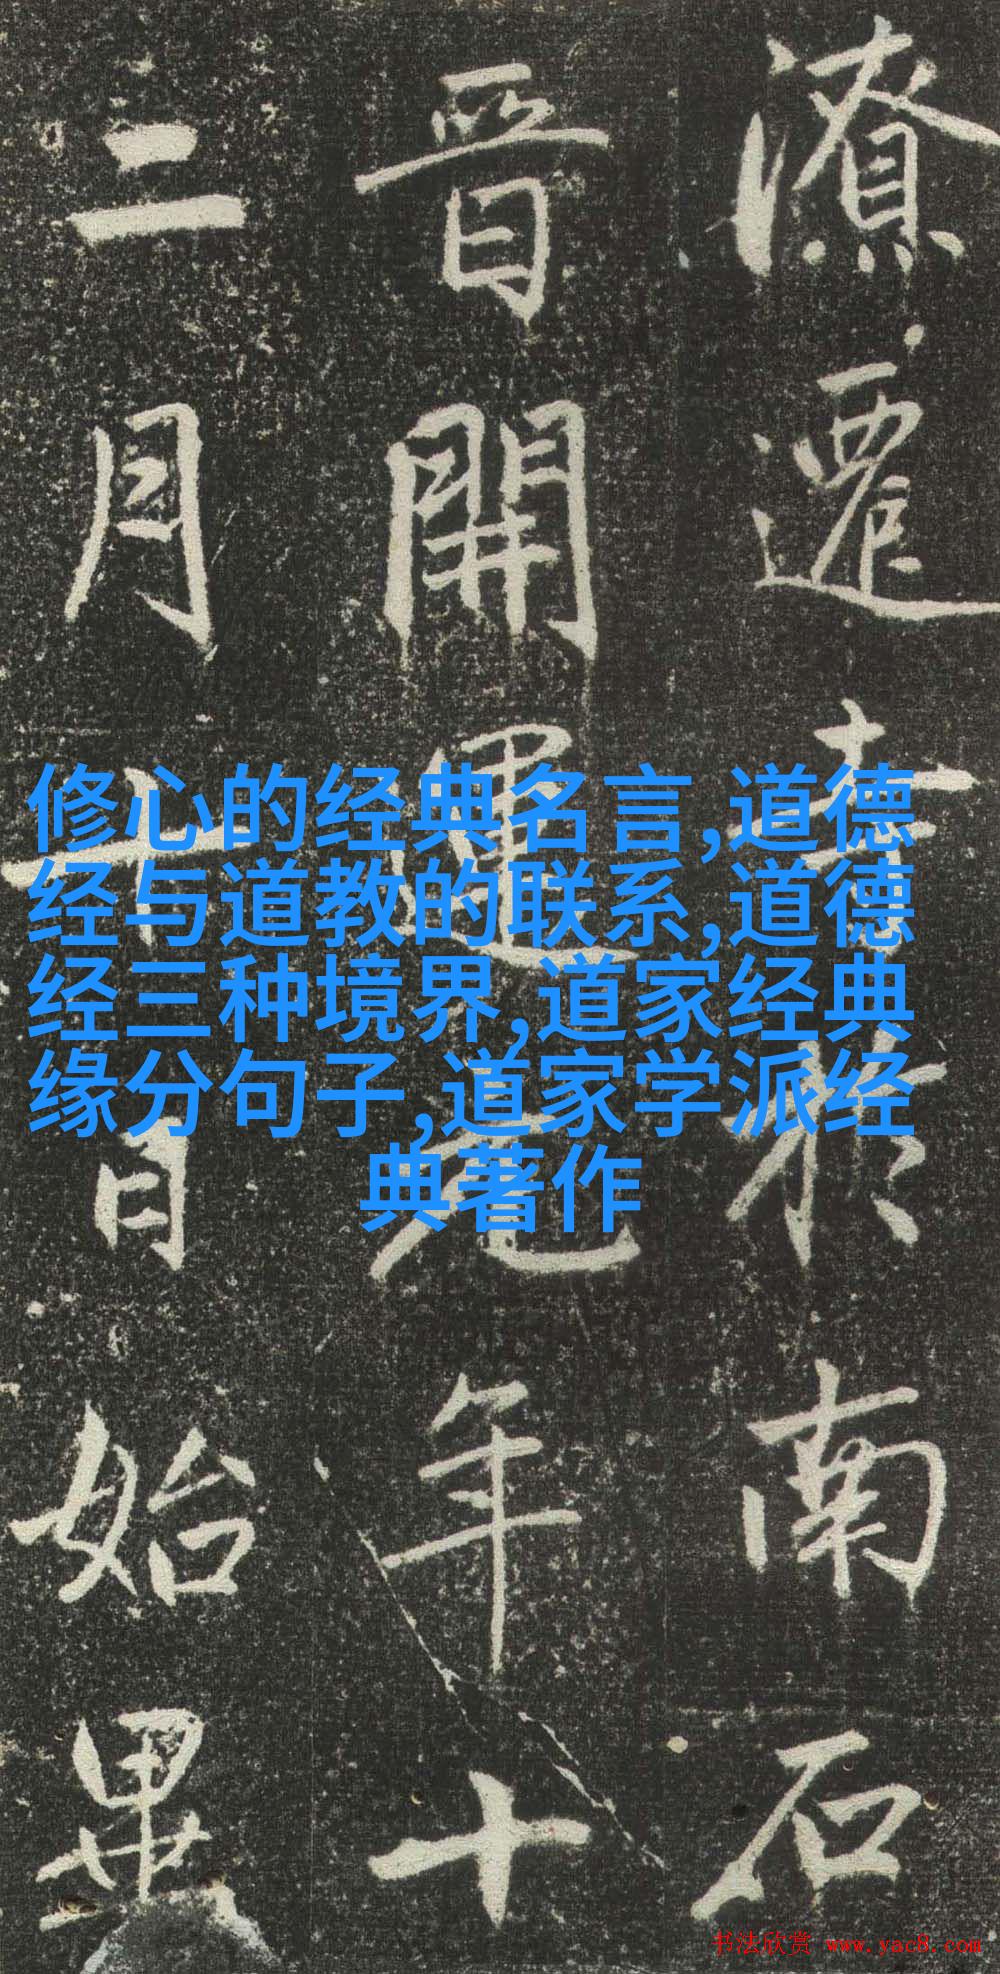 潦遷寺於南石
晉開運元年十
二月十一日始畢
修心的经典名言,道德
经与道教的联系,道德
经三种境界,道家经典
缘分句子,道家学派经
典著作
书法欣赏 www.yac8.com